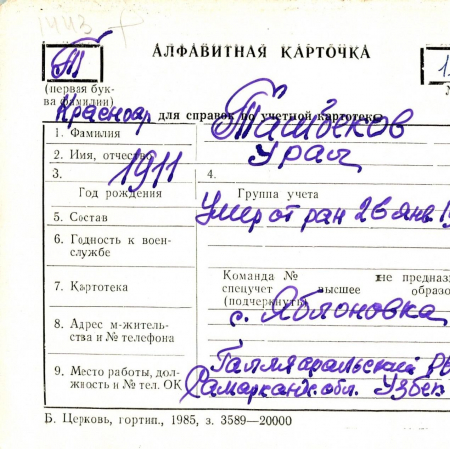 1443
АЛФАВИТНАЯ КАРТОЧКА
Т
(первая бук-
ва фамилии)
Краснояр для справок по учетной картотеке
1. Фамилия Ташбеков
2. Имя, отчество Урал
3. 1911 4.
Год рождения Группа учета
5. Состав Умер от ран 26 янв. 19
6. Годность к воен-
службе
Команда № не предназ
7. Картотека спецучет высшее образо
(подчеркнуть)
8. Адрес м-житель- с. Яблоновка
ства и № телефона
Галляаральский
9. Место работы, дол-
жность и № тел. ОК Самарканд. обл. Узбек
Б. Церковь, гортип., 1985, з. 3589—20000